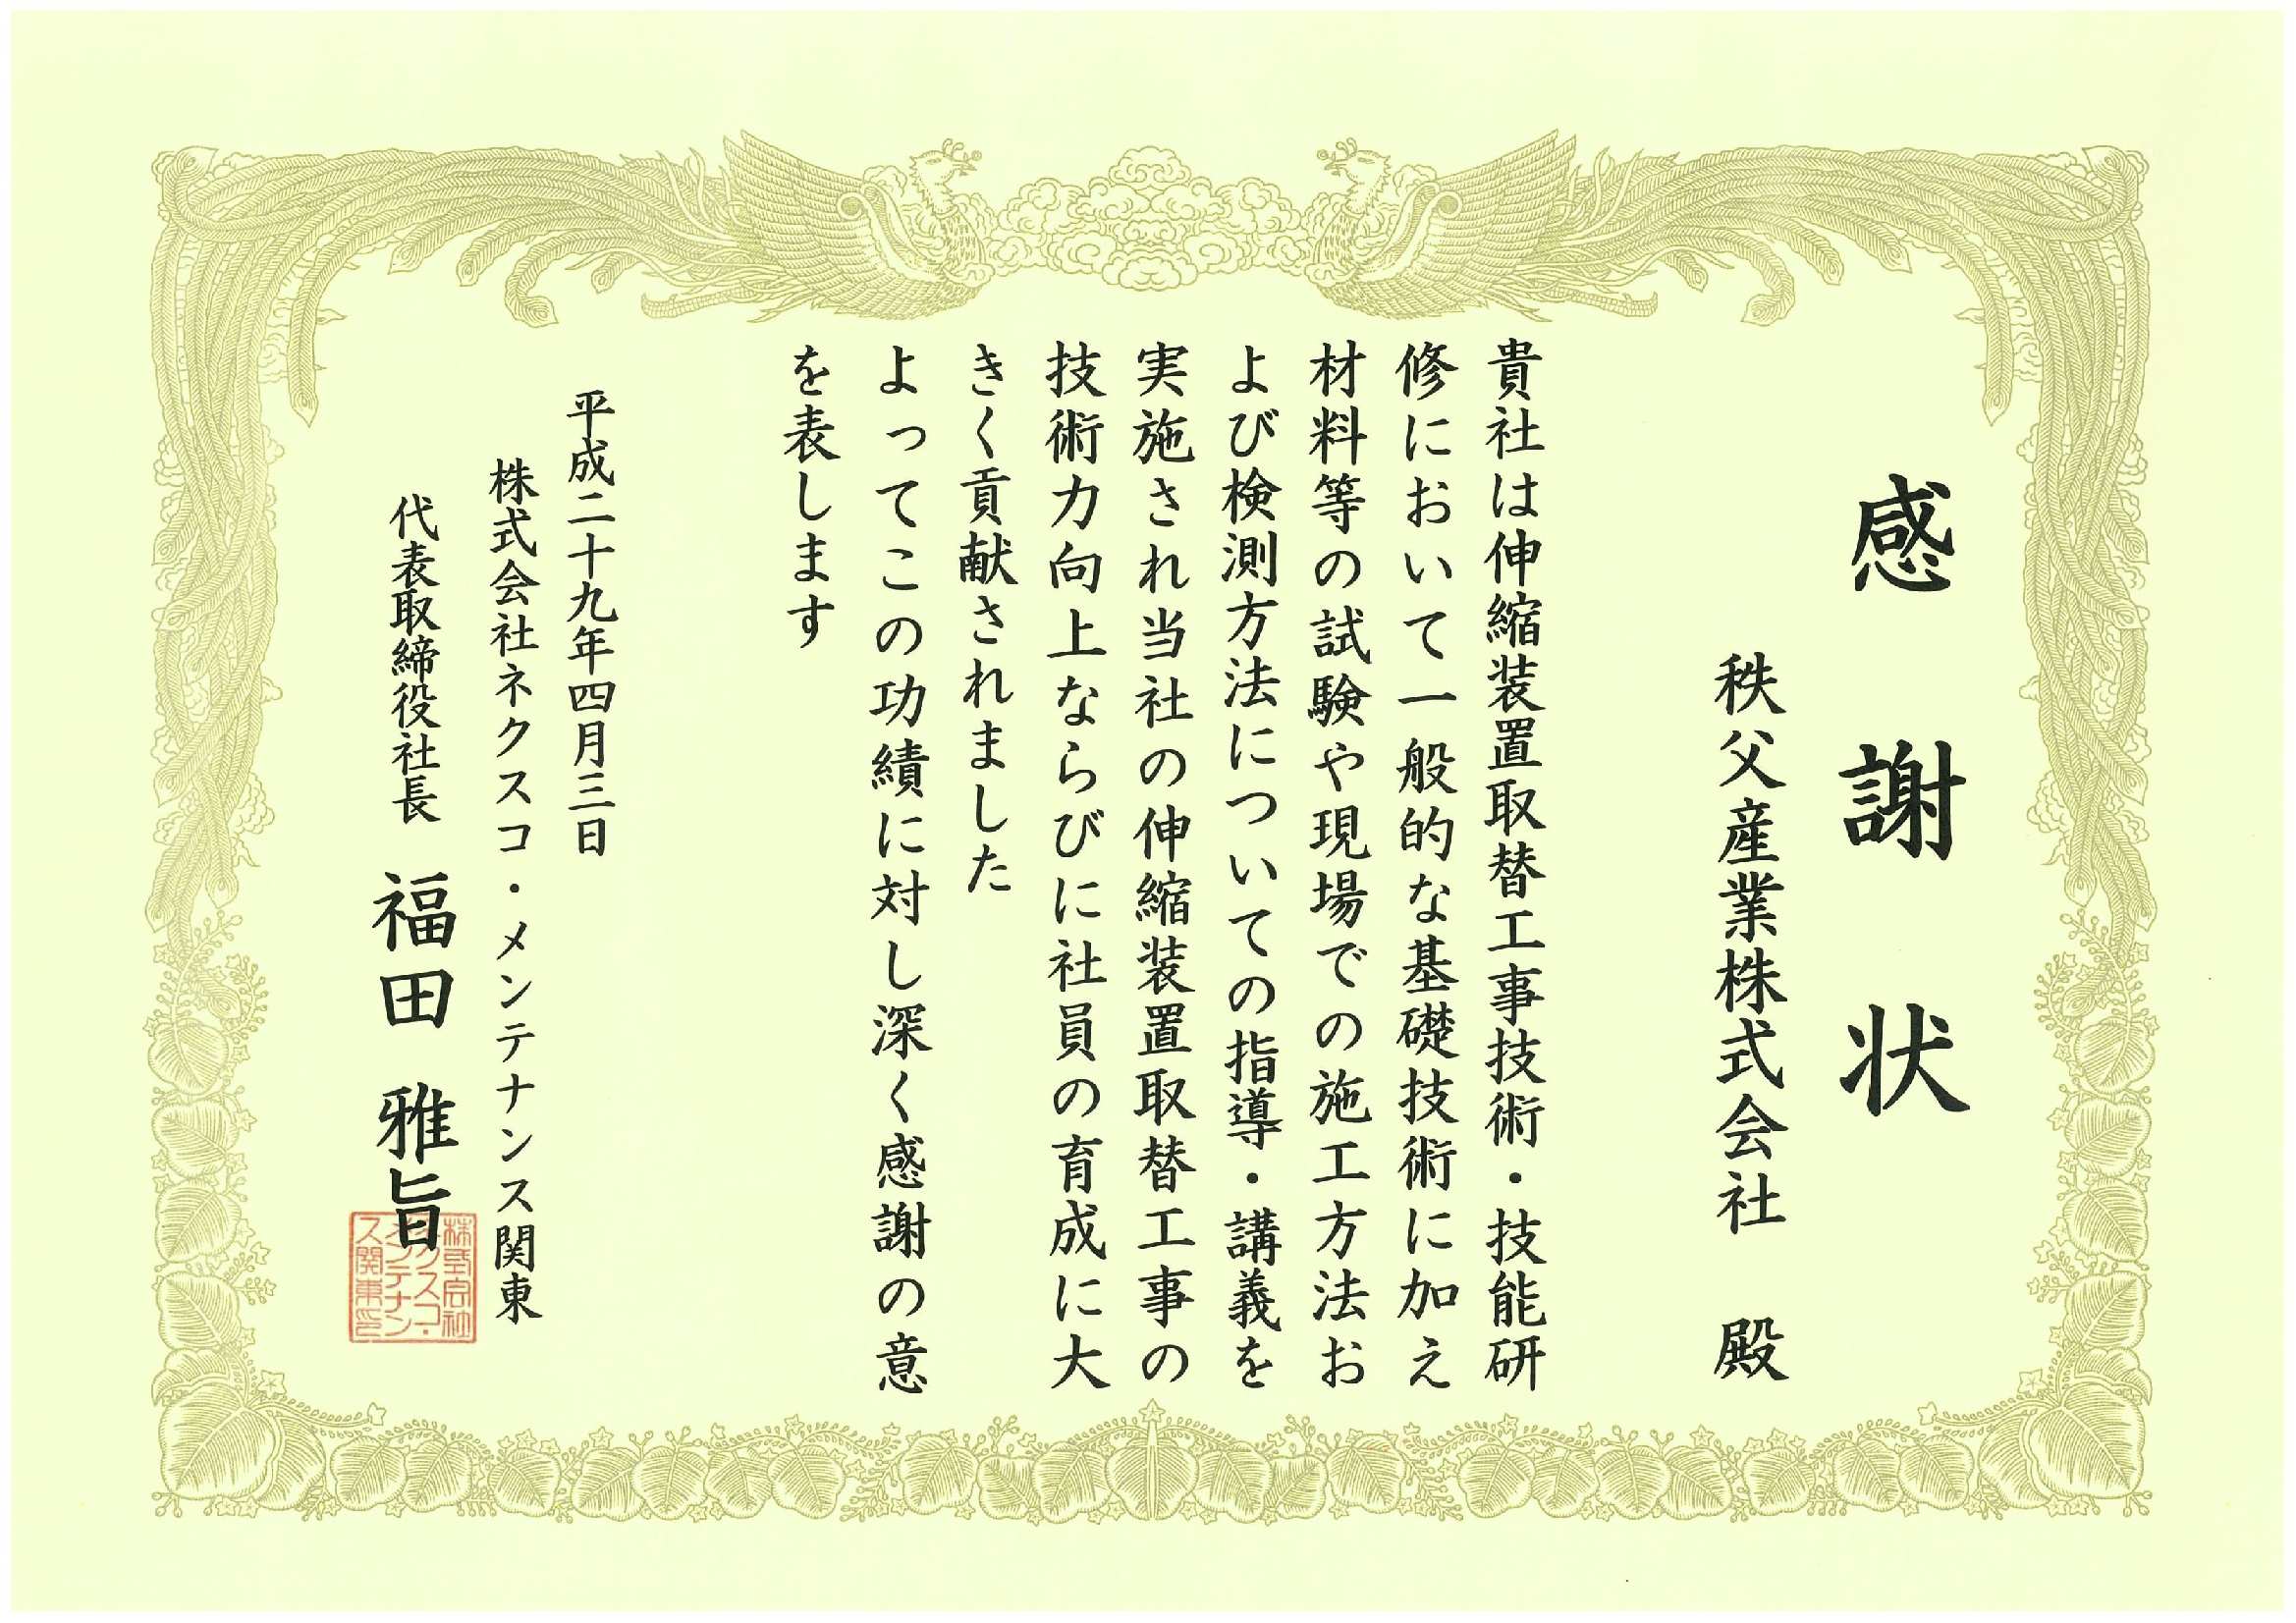 感謝状
秩父産業株式会社 殿
貴社は伸縮装置取替工事技術・技能研
修において一般的な基礎技術に加え
材料等の試験や現場での施工方法お
よび検測方法についての指導・講義を
実施され当社の伸縮装置取替工事の
技術力向上ならびに社員の育成に大
きく貢献されました
よってこの功績に対し深く感謝の意
を表します
平成二十九年四月三日
株式会社ネクスコ・メンテナンス関東
代表取締役社長 福田 雅旨
株式会社
ネクスコ・
メンテナン
ス関東印